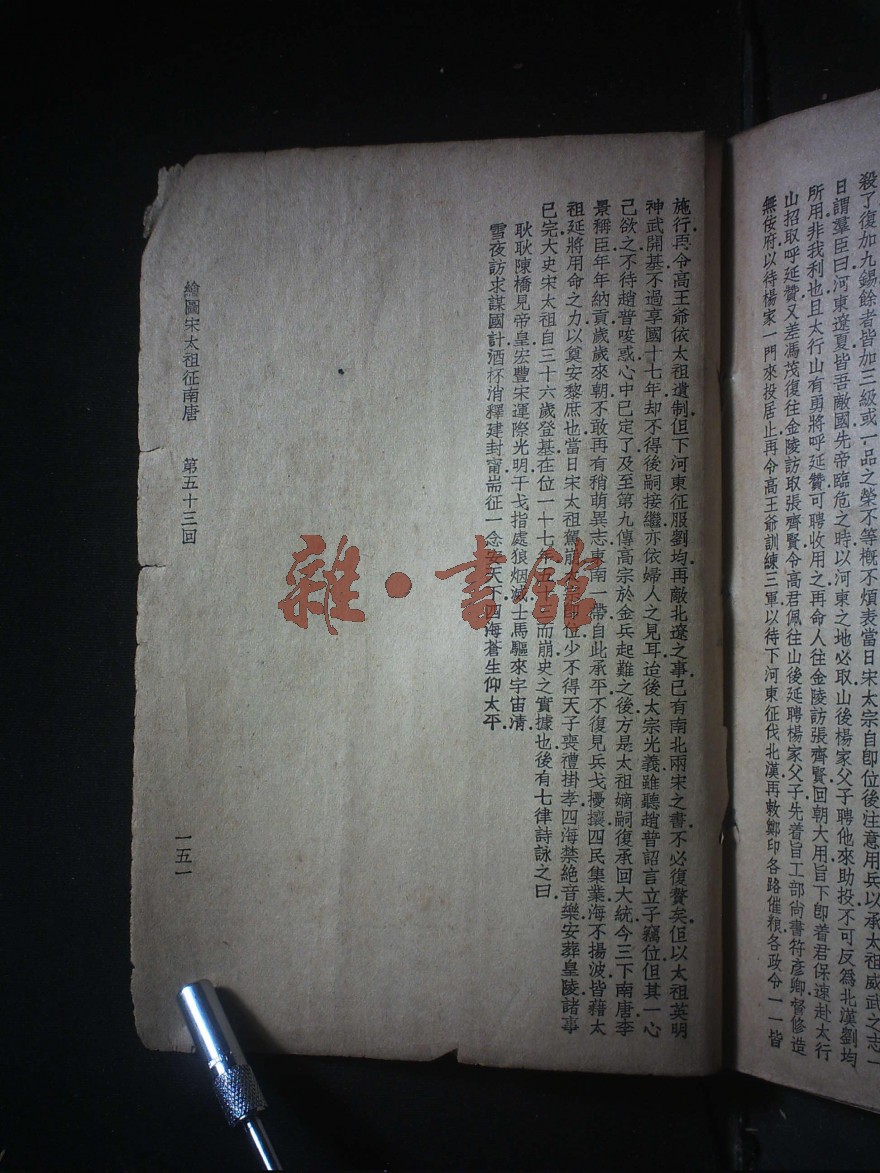 殺了復加九錫餘者皆加三級或一品之榮不等概不煩表當日宋太宗自卽位後注意用兵以承太祖威武之志一
日謂羣臣曰河東遼夏皆吾敵國先帝臨危之時以河東之地必取山後楊家父子聘他來助投不可反爲北漢劉均
所用非我利也且太行山有勇將呼延贊可聘收用之再命人往金陵訪張齊賢回朝大用旨下卽着君保速赴太行
山招取呼延贊又差馮茂復往金陵訪取張齊賢令高君佩往山後延聘楊家父子先着旨工部尚書符彥卿督修造
無佞府以待楊家一門來投居止再令高王爺訓練三軍以待下河東征伐北漢再敕鄭印各路催粮各政令一一皆
施行再令高王爺依太祖遺制但下河東征服劉均再敵北遼之事已有南北兩宋之書不必復贅矣但以太祖英明
神武開基不過享國十七年却不得後嗣接繼亦依婦人之見耳迨後太宗光義雖聽趙普諂言立子竊位但其一心
己欲之不待趙普唆惑心中已定了及至第九傳高宗於金兵起難之後方是太祖嫡嗣復承回大統今三下南唐李
景稱臣年年納貢歲歲來朝不敢再有稍萌異志東南一帶自此承平不復見兵戈擾攘四民集業海不揚波皆藉太
祖延將用命之力以奠安黎庶也當日宋太祖駕崩太宗卽位少不得天子喪禮掛孝四海禁絕音樂安葬皇陵諸事
已完大史宋太祖自三十六歲登基在位一十七年五而崩史之實據也後有七律詩詠之曰
耿耿陳橋見帝皇宏豐宋運際光明干戈指處狼烟滅士馬驅來宇宙清
雪夜訪求謀國計酒杯消釋建封甯耑征一念安天下四海蒼生仰太平
繪圖宋太祖征南唐　第五十三回
一五一
雜·書館